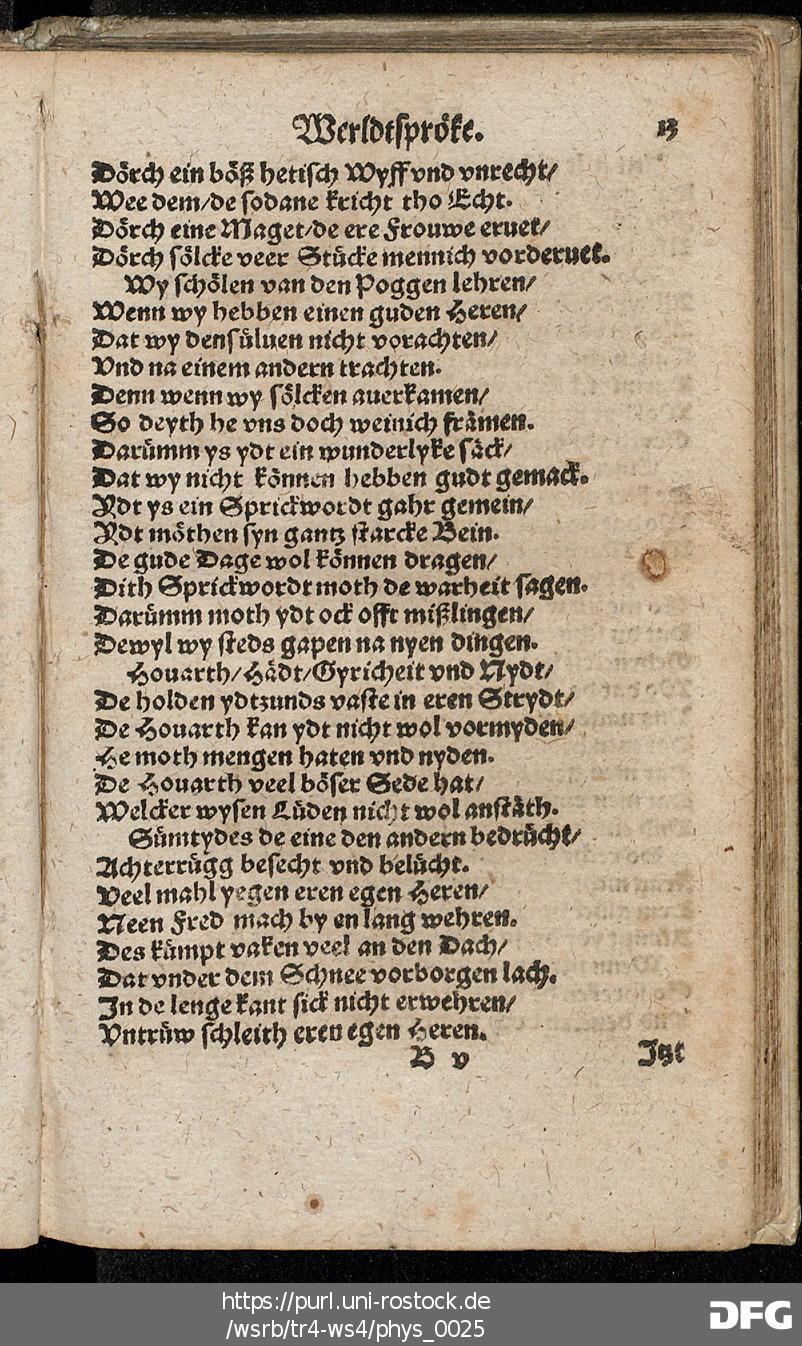 Werldtspröke. 13
Dörch ein böß hetisch Wyff vnd vnrecht/
Wee dem/de sodane kricht tho Echt.
Dörch eine Maget/de ere Frouwe eruet/
Dörch sölcke veer Stücke mennich vorderuet.
Wy schölen van den Poggen lehren/
Wenn wy hebben einen guden Heren/
Dat wy densüluen nicht vorachten/
Vnd na einem andern trachten.
Denn wenn wy sölcken auerkamen/
So deyth he vns doch weinich främen.
Darümm ys ydt ein wunderlyke säck/
Dat wy nicht können hebben gudt gemack.
Ydt ys ein Sprickwordt gahr gemein/
Ydt möthen syn gantz starcke Bein.
De gude Dage wol können dragen/
Dith Sprickwordt moth de warheit sagen.
Darümm moth ydt ock offt mißlingen/
Dewyl wy steds gapen na nyen dingen.
Houarth/Hädt/Gyricheit vnd Nydt/
De holden ydtzunds vaste in eren Strydt/
De Houarth kan ydt nicht wol vormyden/
He moth mengen haten vnd nyden.
De Houarth veel böser Sede hat/
Welcker wysen Lüden nicht wol anstäth.
Sümtydes de eine den andern bedrücht/
Achterrügg besecht vnd belücht.
Veel mahl yegen eren egen Heren/
Neen Fred mach by en lang wehren.
Des kümpt vaken veel an den Dach/
Dat vnder dem Schnee vorborgen lach.
In de lenge kant sick nicht erwehren/
Vntrüw schleith eren egen Heren.
B v Itzt
https://purl.uni-rostock.de
/wsrb/tr4-ws4/phys_0025
DFG